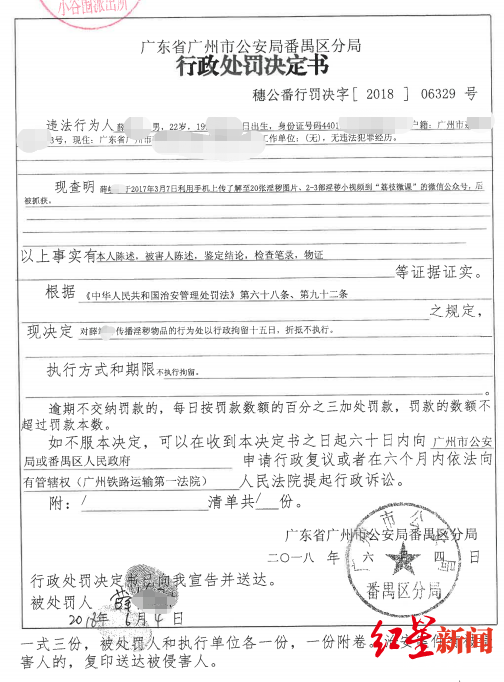 小谷围派出所
广东省广州市公安局番禺区分局
行政处罚决定书
穗公番行罚决字[ 2018 ] 06329 号
违法行为人 男，22岁，19 日出生，身份证号码4401 户籍：广州市
3号，现住：广东省广州市 工作单位：(无)，无违法犯罪经历。
现查明 薛 于2017年3月7日利用手机上传了解至20张淫秽图片、2-3部淫秽小视频到“荔枝微课”的微信公众号，后
被抓获。
以上事实有本人陈述，被害人陈述，鉴定结论，检查笔录，物证
等证据证实。
根据 《中华人民共和国治安管理处罚法》第六十八条、第九十二条
之规定，
现决定 对薛 传播淫秽物品的行为处以行政拘留十五日，折抵不执行。
执行方式和期限不执行拘留。
。
逾期不交纳罚款的，每日按罚款数额的百分之三加处罚款，罚款的数额不
超过罚款本数。
如不服本决定，可以在收到本决定书之日起六十日内向 广州市公安
局或番禺区人民政府 申请行政复议或者在六个月内依法向
有管辖权（广州铁路运输第一法院） 人民法院提起行政诉讼。
附：/ 清单共/ 份。
广东省广州市公安局番禺区分局
二〇一八 年 六 四 日
广州市公安局
番禺区分局
行政处罚决定书已向我宣告并送达。
被处罚人 薛
2018年 6月 4日
一式三份，被处罚人和执行单位各一份，一份附卷。治安
害人的，复印送达被侵害人。
红星新闻